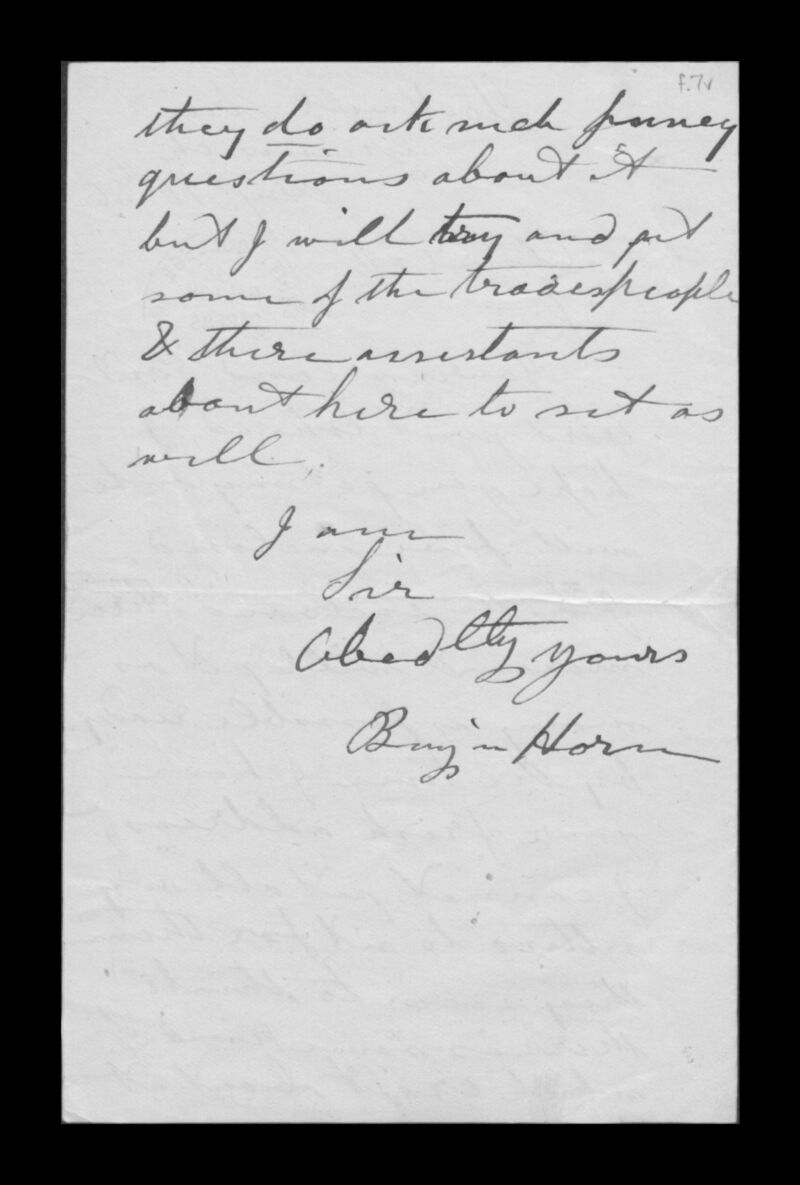 f.7v
they do ask such funney
questions about it
but I will try and get
some of the tradespeople
& there assistants
about here to set as
well.
I am
Sir
Obed tly yours
Benj'n Horn